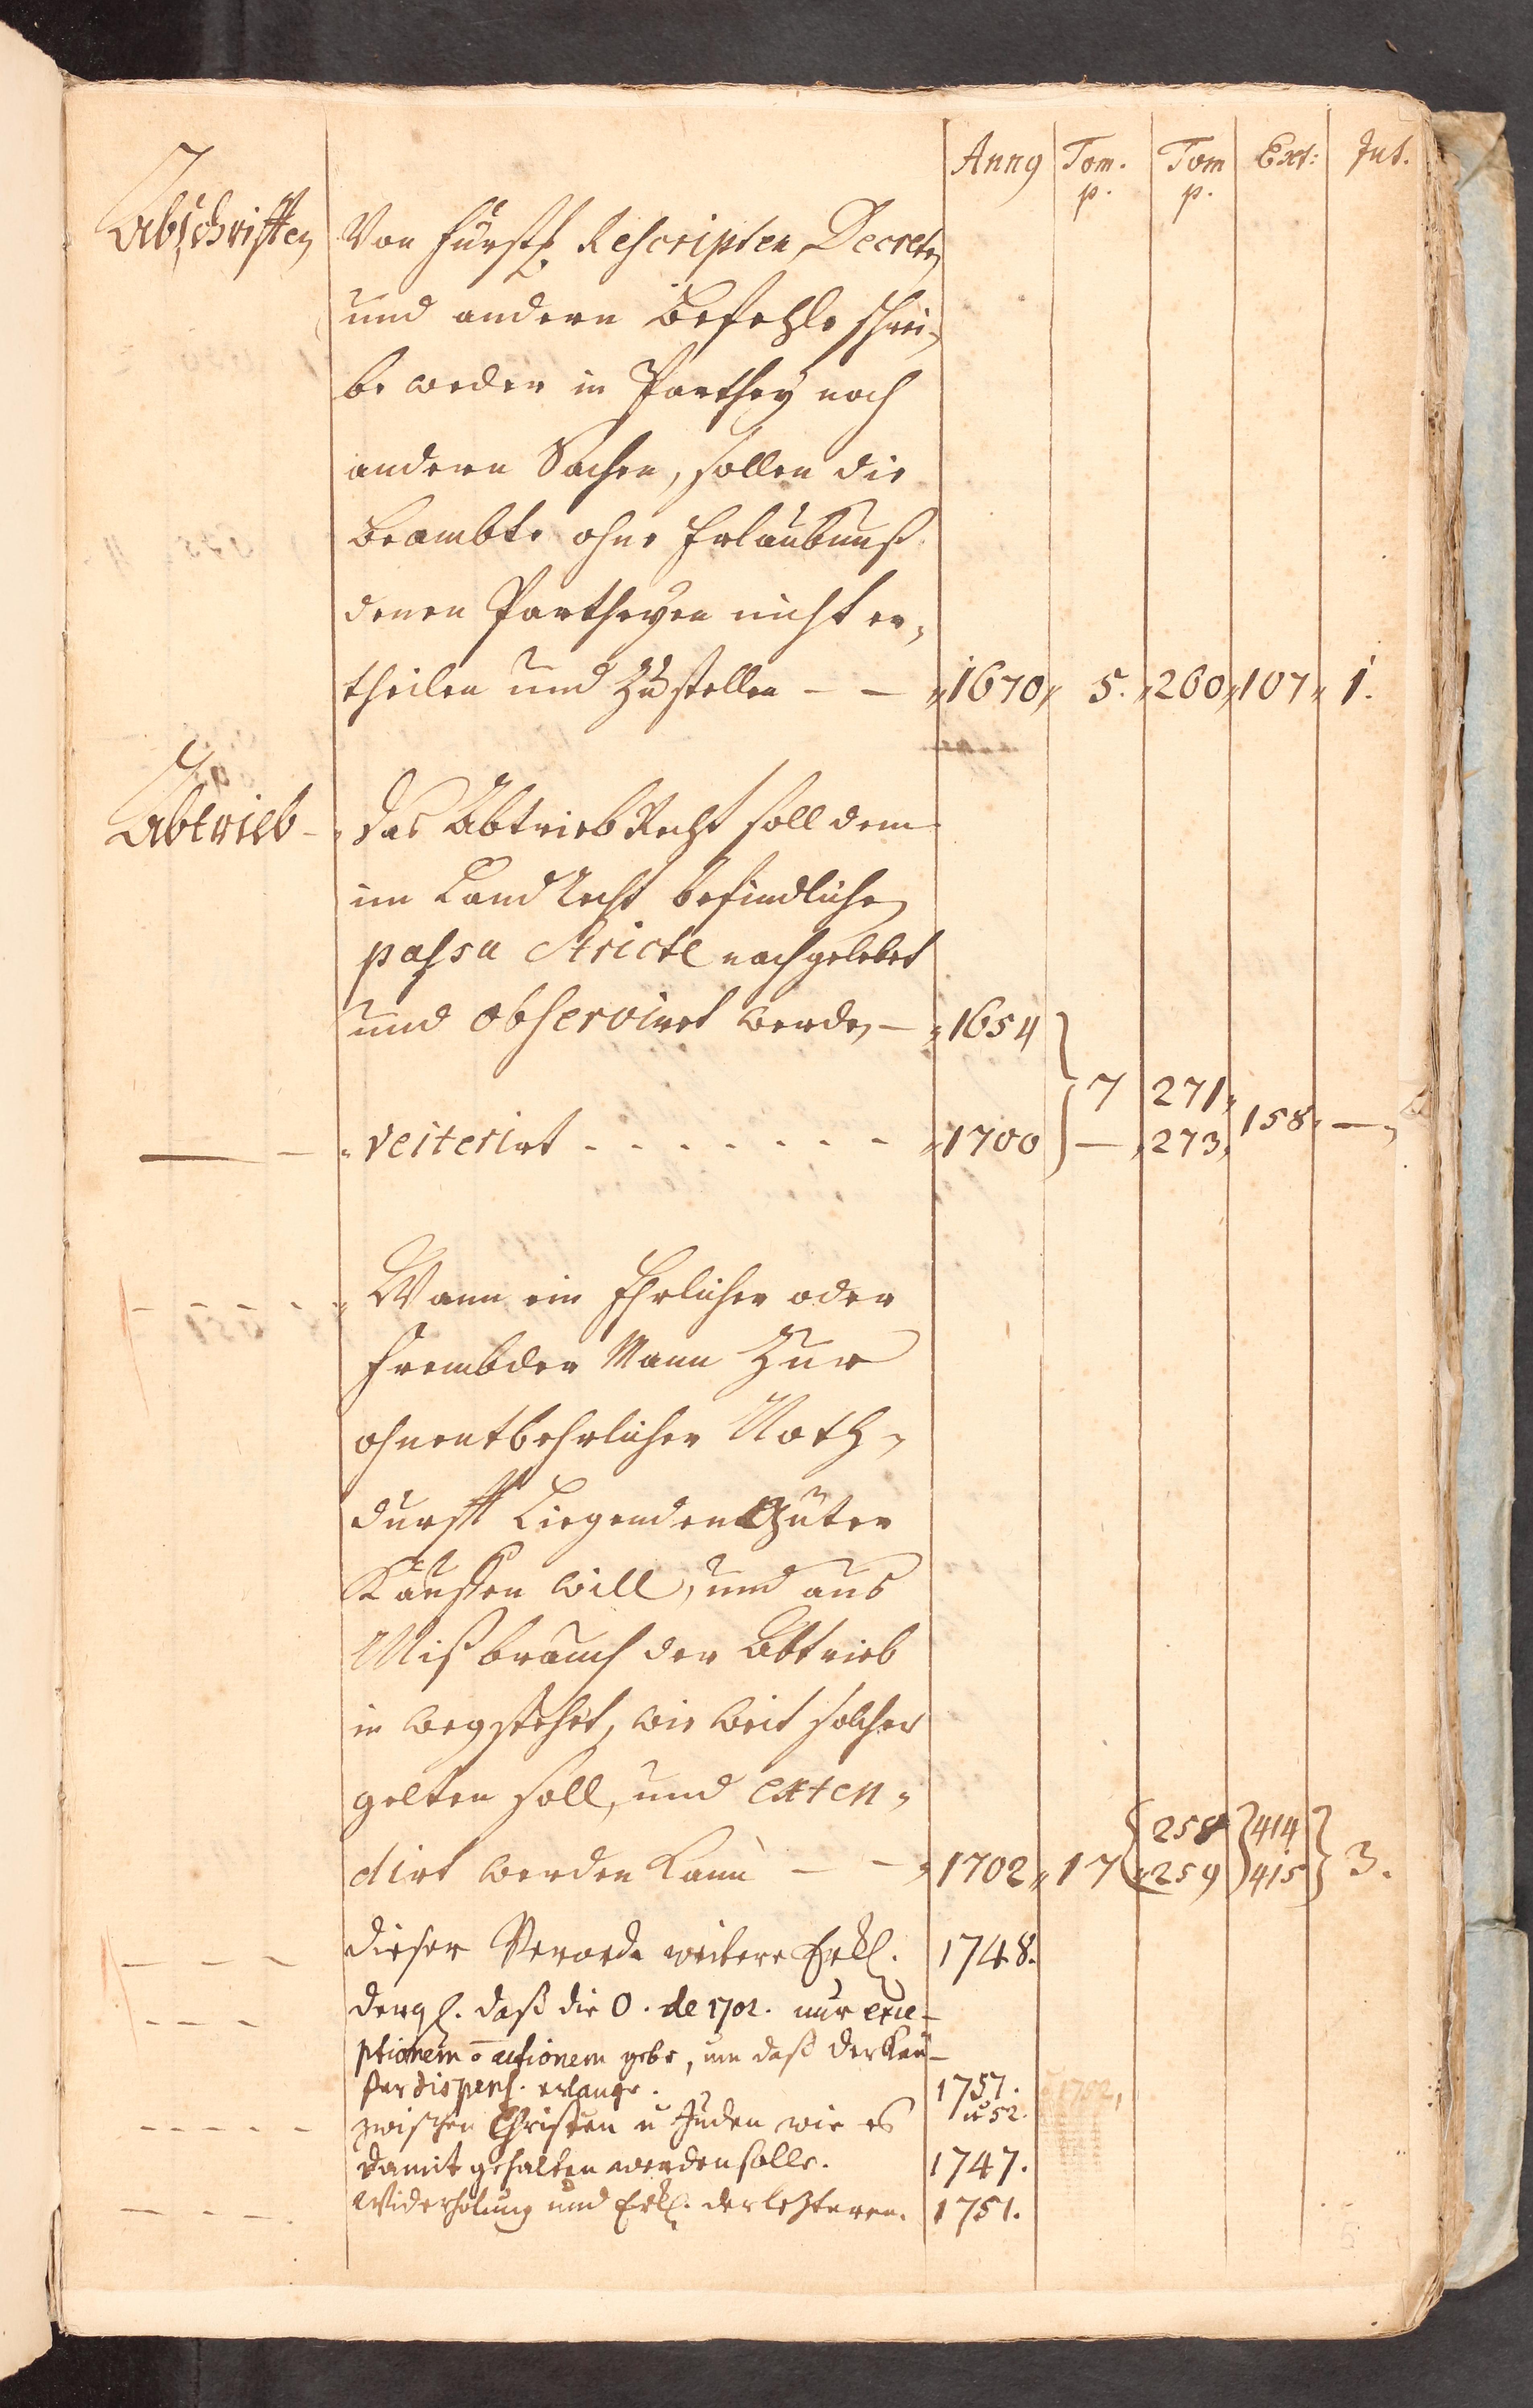 Anno Tom. p. Tom p. Ext: Int.
Abschrifften Von Fürstl. Rescripten, Decreten
und andern Befehle schrei,
be weder in Parthey noch
andern Sachen, sollen die
Beambte ohne Erlaubnuß
denen Partheyen nicht er,
theilen und zustellen – – „1670„ 5. „260„ 107„ 1.
Abtrieb – „Das Abtrieb Recht soll dem
im Land Recht befindlichen
passu stricte nachgelebet
und observiret werden – „1654
7 271„
— – „reiterirt - - - - - - - - „1700 — „273„ 158„ —„
- - - - - „Wann ein Ehrlicher oder
frembder Mann Zur
ohnentbehrlicher Noth,
durfft Liegenden Güter
Kauffen will, und aus
Mißbrauch der Abtrieb
in weg stehet, wie weit solcher
gelten soll, und exten,
258 414
dirt werden Kann – – „1702„ 17 „259 415 3.
- - - dieser Verordn weitere Erkl. 1748.
- - - dergl. daß die O. de 1702. nur exce-
ptionem õ actionem gebe, um daß der Käu-
fer dispens. erlange. 1757. 1752,
u 52.
- - - - - zwischen Christen u Juden wie es
damit gehalten werden solle. 1747.
- - - - Widerholung und Erkl. der lezteren. 1751.